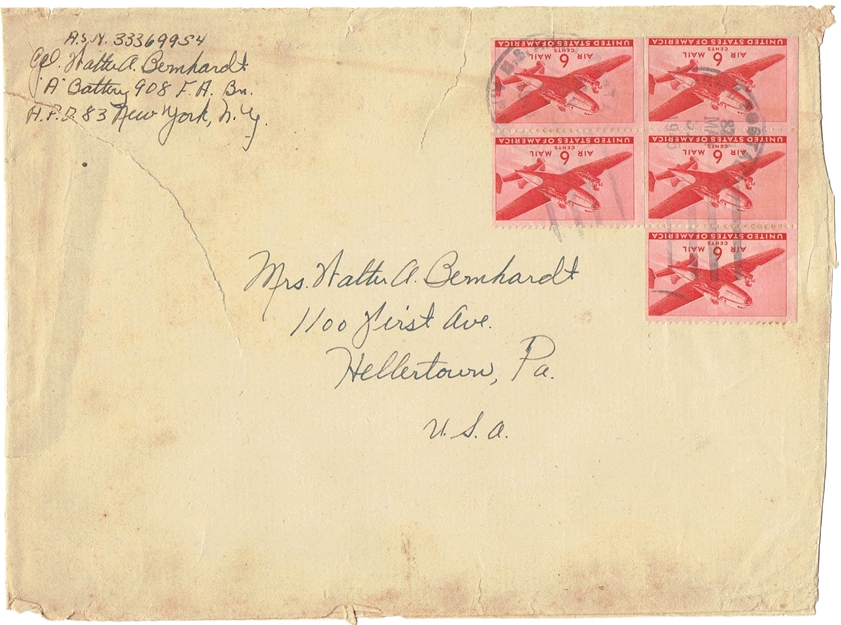 A.S.N. 33369954
Cpl. Walter A. Bernhardt
"A" Battery 908 F.A. Bn.
A.P.O. 83 New York, N.Y.
UNITED STATES OF AMERICA
6 CENTS
AIR MAIL
UNITED STATES OF AMERICA
6 CENTS
AIR MAIL
UNITED STATES OF AMERICA
6 CENTS
AIR MAIL
UNITED STATES OF AMERICA
6 CENTS
AIR MAIL
UNITED STATES OF AMERICA
6 CENTS
AIR MAIL
Mrs. Walter A. Bernhardt
1100 First Ave.
Hellertown, Pa.
U.S.A.